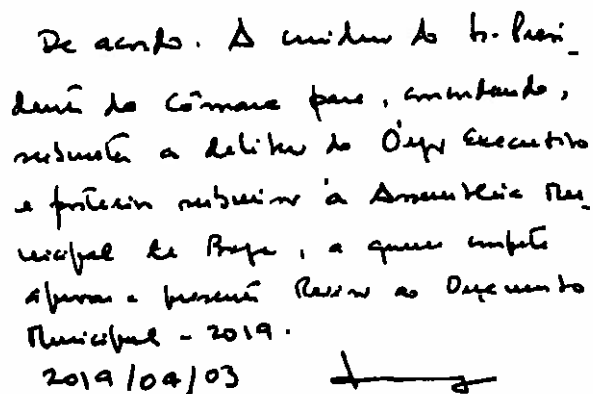 De acordo. À consideração do Sr. Presi-
dente da Câmara para, concordando,
submeter a deliberação do Órgão Executivo
e posterior submissão à Assembleia Mu-
nicipal de Braga, a quem compete
aprovar a presente Revisão ao Orçamento
Municipal - 2019.
2019/04/03